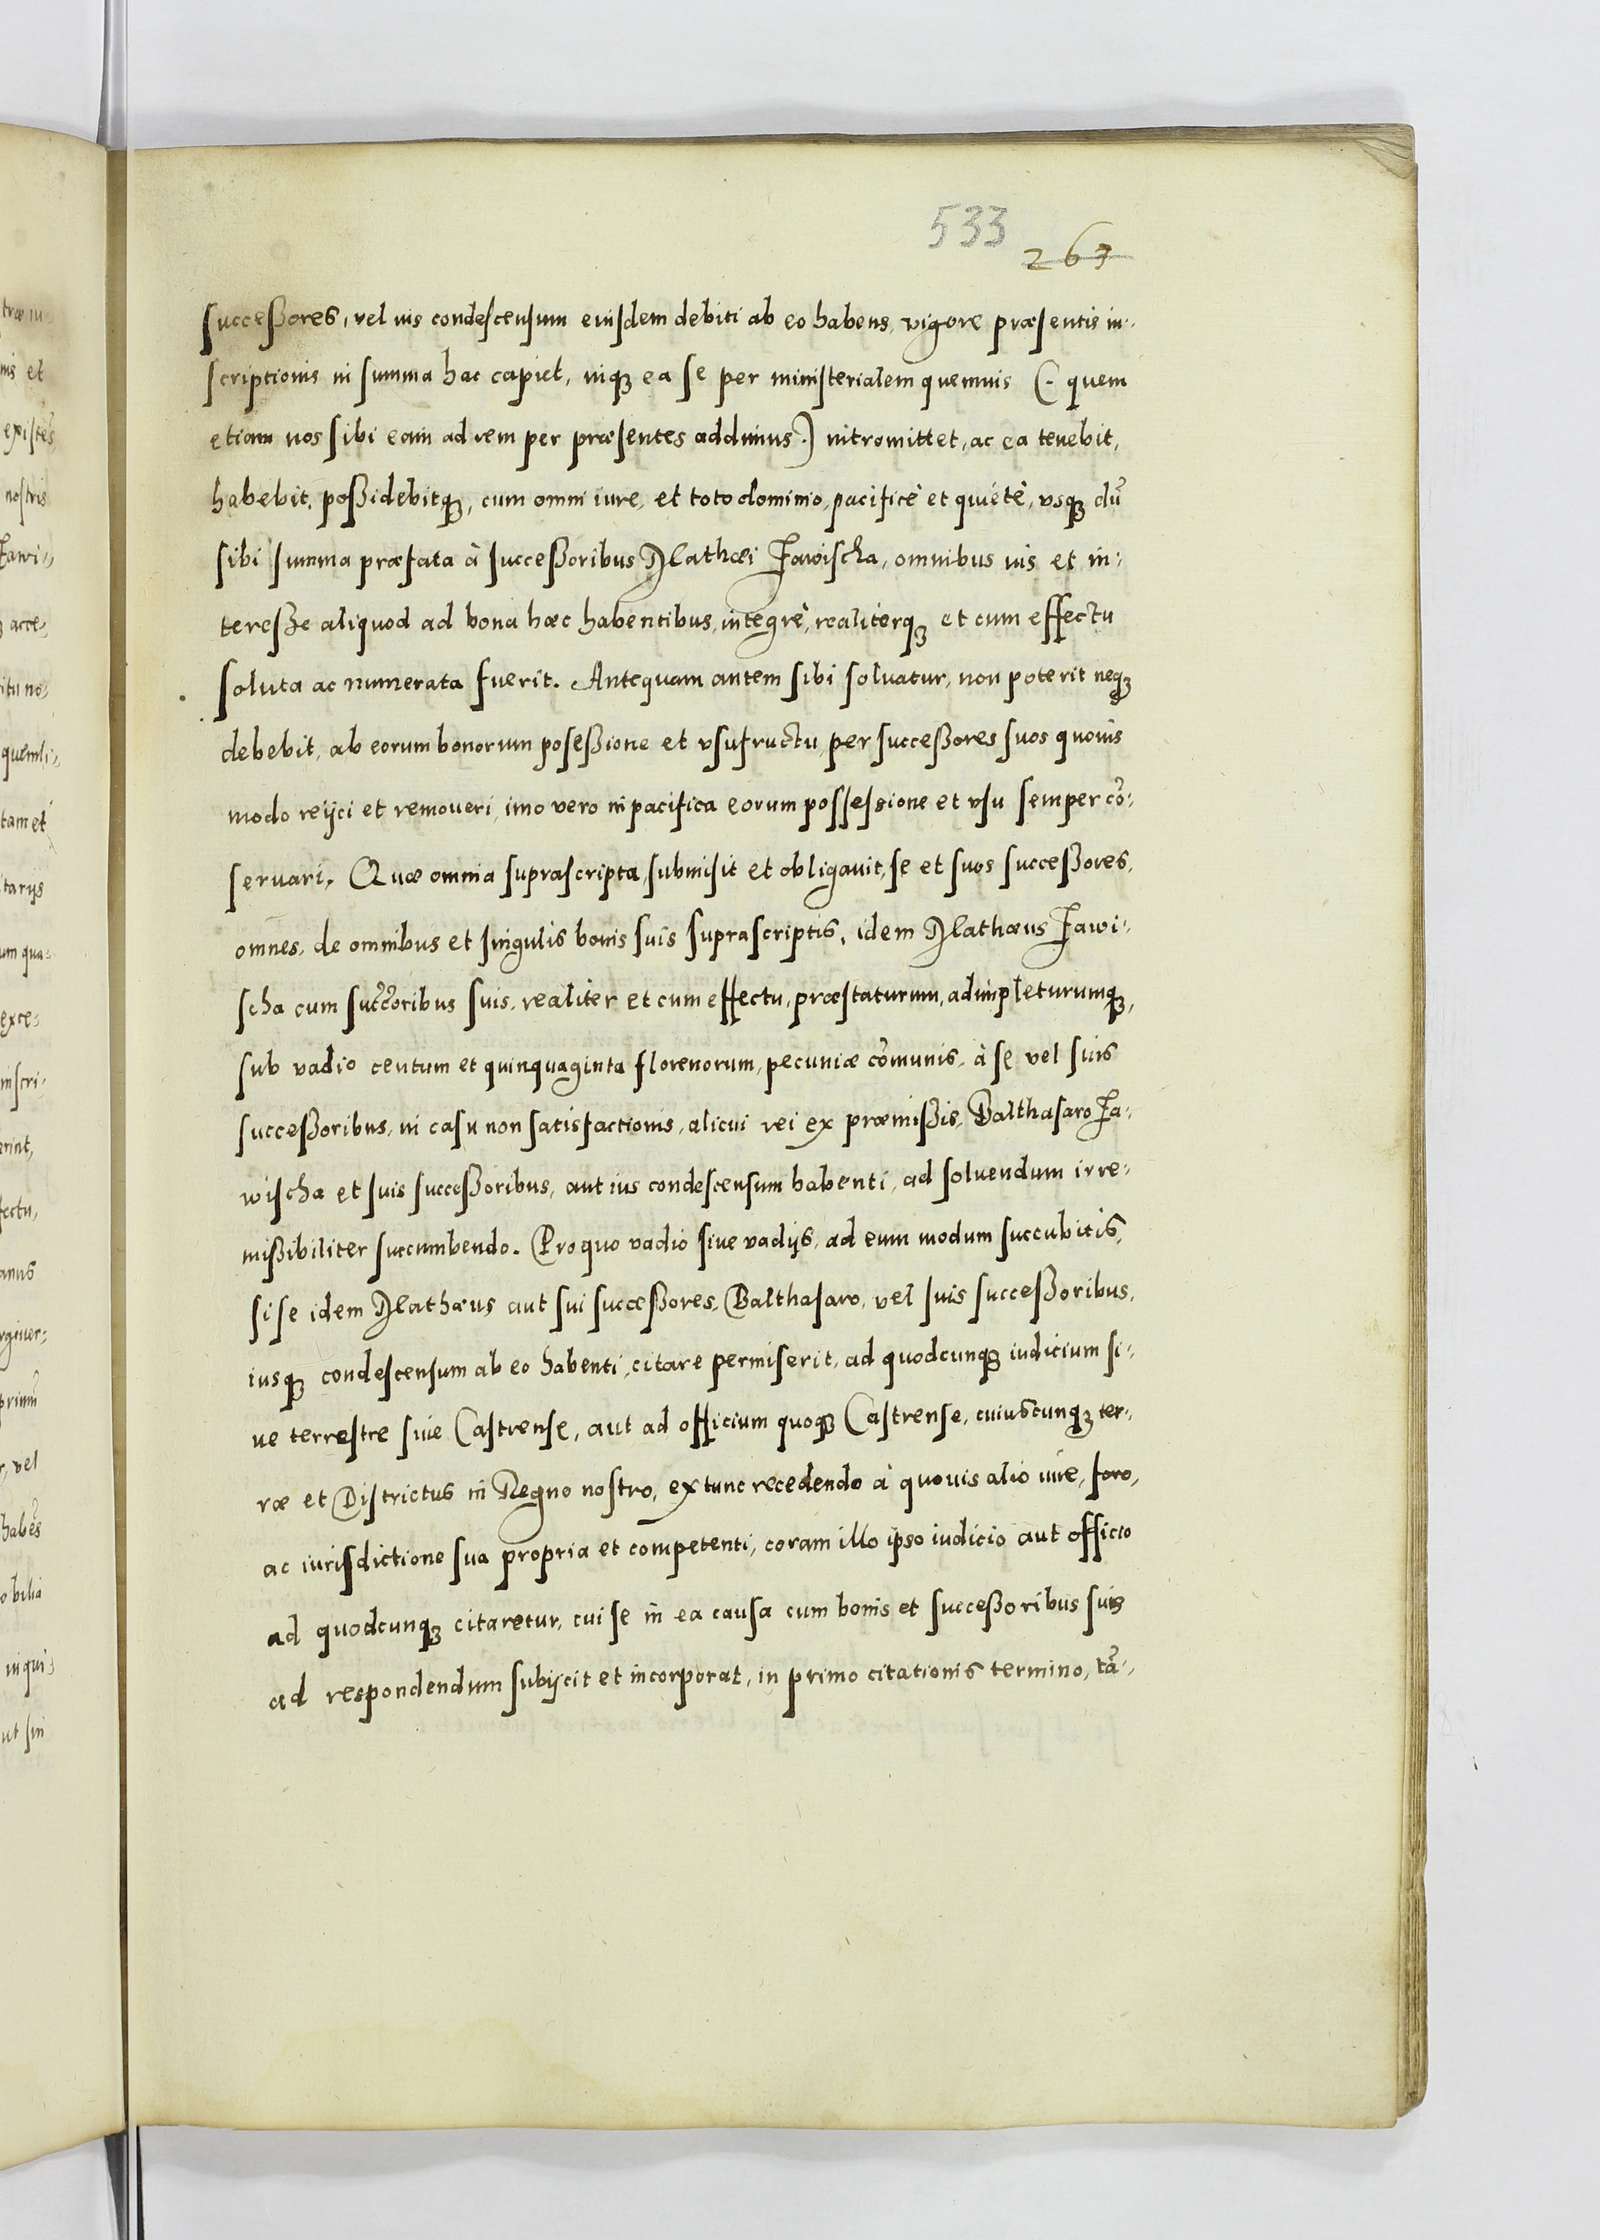 533
263
successores, vel ius condescensum eiusdem debiti ab eo habens, vigore præsentis in-
scriptionis in summa hac capiet, inq3 ea se per ministerialem quemuis (. quem
etiam nos sibi eam ad rem per præsentes addimus .) intromittet, ac ea tenebit,
habebit, possidebitq3, cum omni iure, et toto dominio, pacificè et quietè, vsq3 dũ
sibi summa præfata à successoribus Mathæi Jawischa, omnibus ius et in-
teresse aliquod ad bona hæc habentibus, integrè, realiterq3 et cum effectu
soluta ac numerata fuerit. Antequam autem sibi soluatur, non poterit neq3
debebit, ab eorum bonorum posessione et vsufructu, per successores suos quouis
modo reijci et remoueri, imo vero in pacifica eorum possessione et vsu semper cõ-
seruari. Quæ omnia suprascripta, submisit et obligauit, se et suos successores,
omnes, de omnibus et singulis bonis suis suprascriptis, idem Mathæus Jawi-
scha cum succõribus suis, realiter et cum effectu, præstaturum, adimpleturumq3,
sub vadio centum et quinquaginta florenorum, pecuniæ cõmunis, à se vel suis
successoribus, in casu non satisfactionis, alicui rei ex præmissis, Balthasaro Ja-
wischa et suis successoribus, aut ius condescensum habenti, ad soluendum irre-
missibiliter succumbendo. Pro quo vadio siue vadijs, ad eum modum succubitis,
si se idem Mathæus aut sui successores, Balthasaro, vel suis successoribus,
iusq3 condescensum ab eo habenti, citare permiserit, ad quodcunq3 iudicium si-
ue terrestre siue Castrense, aut ad officium quoq3 Castrense, cuiuscunq3 ter-
ræ et Districtus in Regno nostro, ex tunc recedendo à quouis alio iure, foro,
ac iurisdictione sua propria et competenti, coram illo ipso iudicio aut officio
ad quodcunq3 citaretur, cui se in ea causa cum bonis et successoribus suis
ad respondendum subijcit et incorporat, in primo citationis termino, tã-